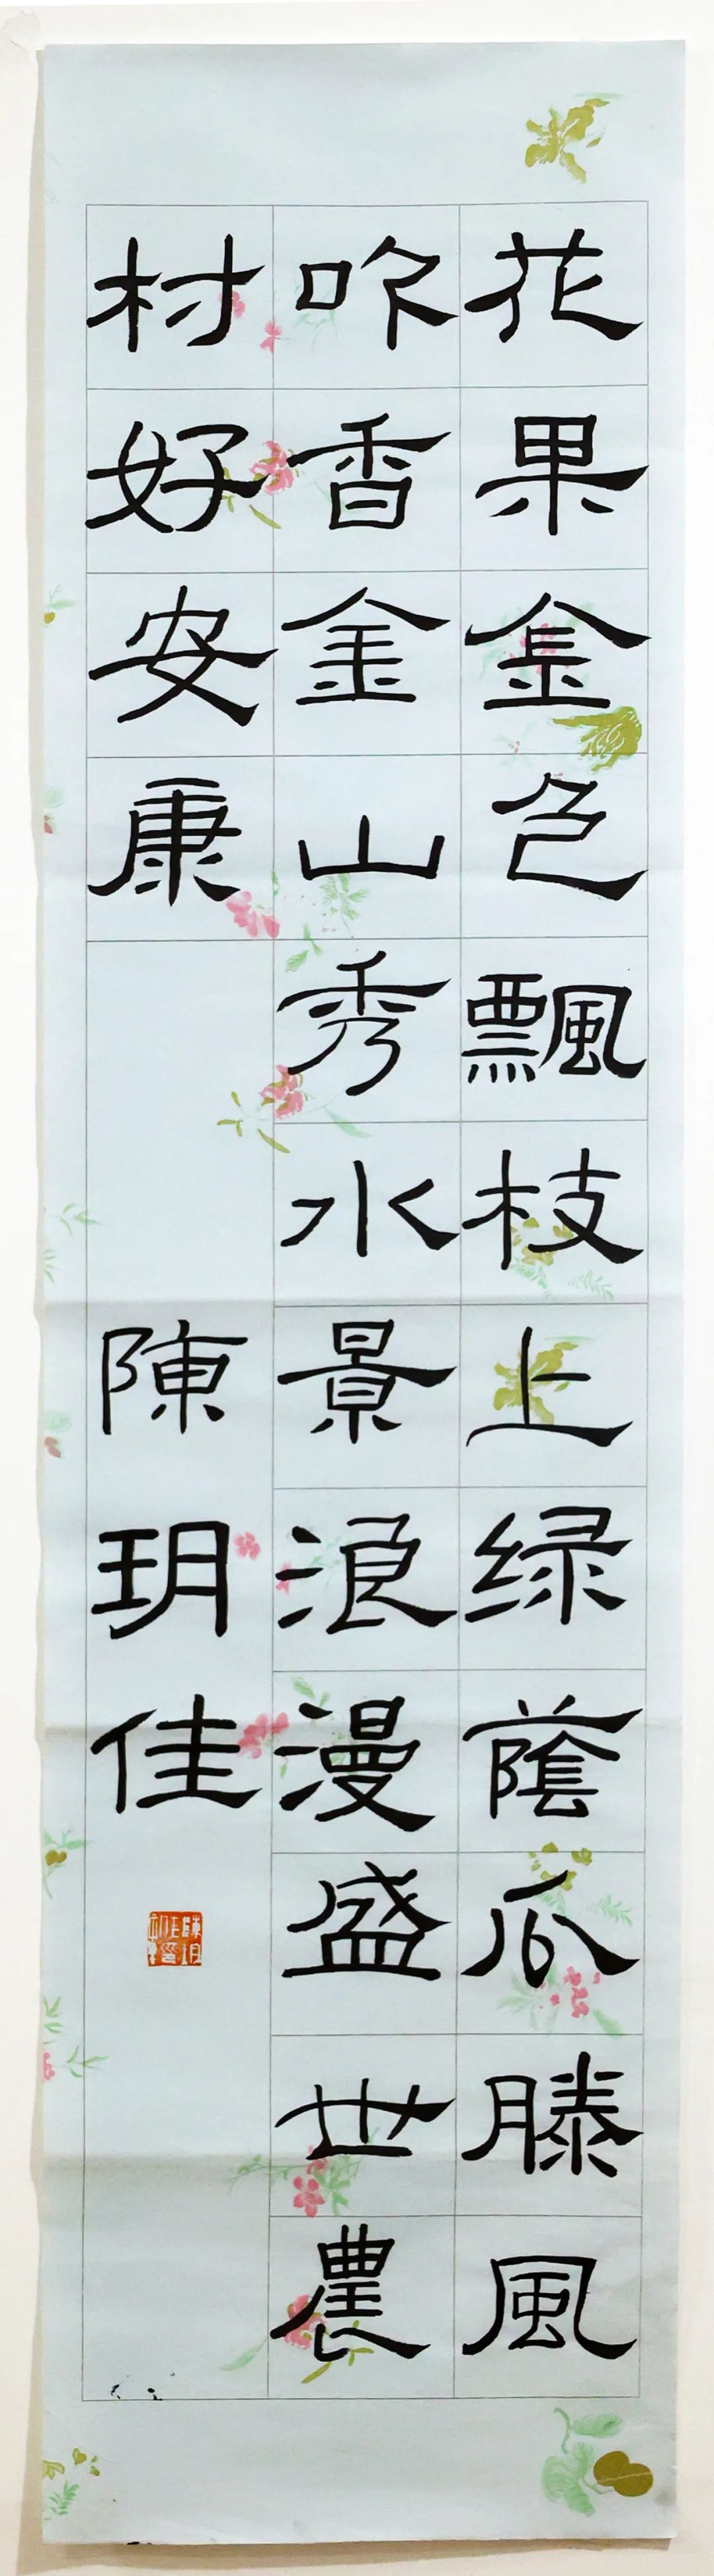 花果金色飄枝上绿蔭瓜滕風
吹香金山秀水景浪漫盛世農
村好安康
陳玥佳